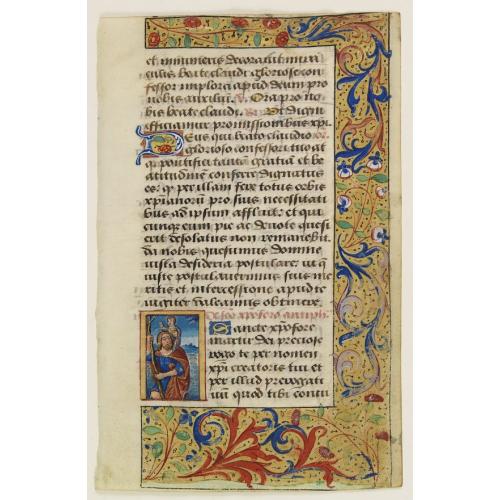 et innumeris decoratit mira
culis beate claudi gloriose con
fessor implora apud deum pro
nobis auxiliu. V. Ora pro no
bis beate claudi. R. Ut digni
efficiamur promissionibus xpi.
Deus qui beato claudio
glorioso confessori tuo at
q3 pontifici tantam gratiã et be
atitudinẽ conferre dignatus
es: q per illam fere totus orbis
xpianorũ pro suis necessitati
bus ad ipsum affluit: et qui
cunque eum pie ac devote quesi
erit desolatus non remanebit.
da nobis quesumus domine
iusta desideria postulare: ut q
iuste postulaverimus suis me
ritis et intercessione apud te
iugiter valeamus obtinere.
De sco xpoforo antiph.
Sancte xpofore
martir dei preciose
rogo te per nomen
xpi creatoris tui et
per illud prerogati
vũ quod tibi contu